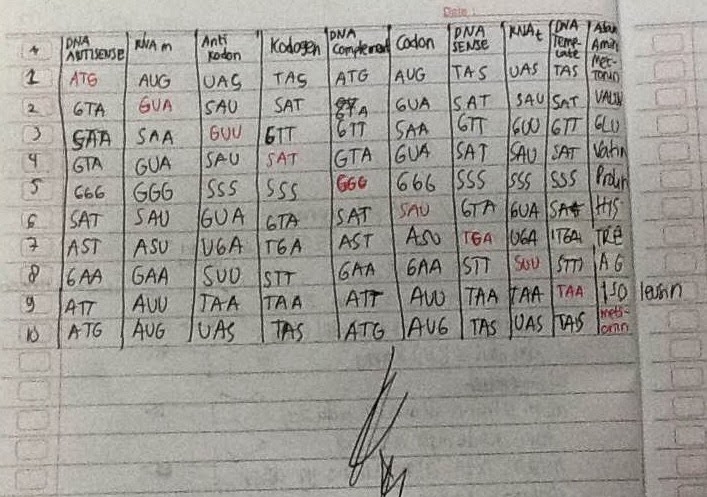 Date :
DNA ANTISENSE RNA m Anti Kodon Kodogen DNA Complement Codon DNA SENSE RNA t DNA Template Asam Amino
1 ATG AUG UAS TAS ATG AUG TAS UAS TAS Metionin
2 GTA GUA SAU SAT GTA GUA SAT SAU SAT VALIN
3 GAA SAA GUU GTT GTT SAA GTT GUU GTT GLU
4 GTA GUA SAU SAT GTA GUA SAT SAU SAT Valin
5 GGG GGG SSS SSS GGG GGG SSS SSS SSS Prolin
6 SAT SAU GUA GTA SAT SAU GTA GUA SAT HIS
7 AST ASU UGA TGA AST ASU TGA UGA TGA TRE
8 GAA GAA SUU STT GAA GAA STT SUU STT AG
9 ATT AUU TAA TAA ATT AUU TAA TAA TAA ISO leusin
10 ATG AUG UAS TAS ATG AUG TAS UAS TAS